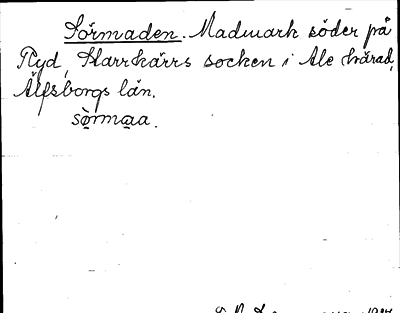 Sörmaden. Madmark söder på
Ryd, Starrkärrs socken i Ale härad,
Älfsborgs län.
sò̤rma̤a.